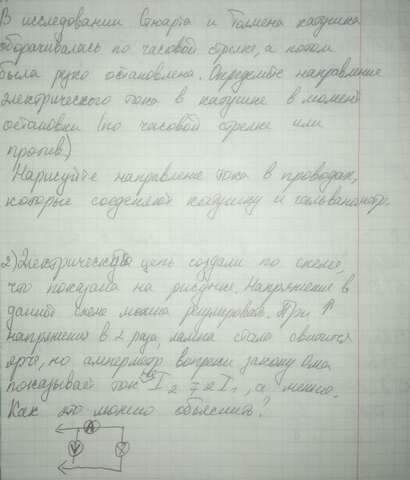 В исследовании Стюарта и Толмена катушка
оборачивалась по часовой стрелке, а потом
была резко остановлена. Определите направление
электрического тока в катушке в момент
остановки (по часовой стрелке или
против.)
Нарисуйте направление тока в проводах,
которые соеденяют катушку и гальванометр.
2) Электрическую цепь создали по схеме,
что показана на рисунке. Напряжение в
данной схеме можна регулировать. При ↑
напряжения в 2 раза, лампа стала светится
ярче, но амперметр вопреки закону Ома
показывает ток не I₂ = 2I₁, а менше.
Как это можно объяснить?
A
V